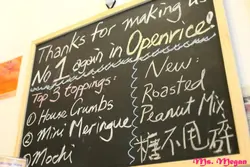 Thanks for making us
No 1 again in Openrice!
Top 3 toppings:
① House Crumbs
② Mini Meringue
③ Mochi
New:
Roasted
Peanut Mix
糖不甩碎
Ms. Megan